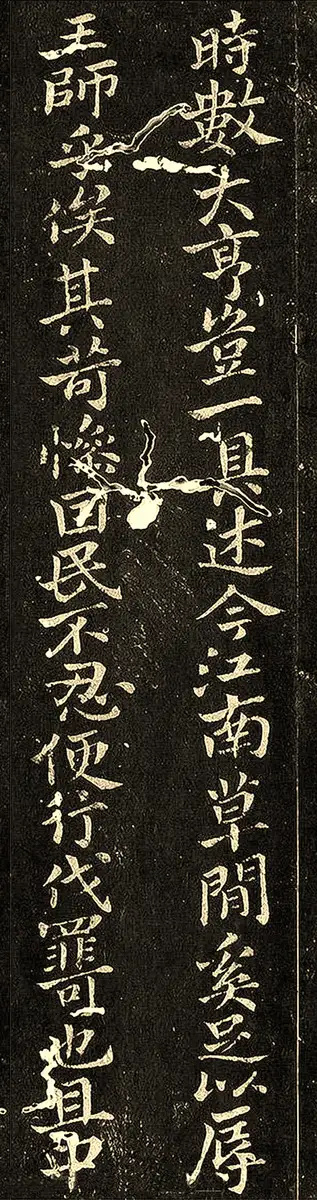 時數大亨豈一具述今江南草間奚足以辱
王師乎俟其苛慘因民不忍便行伐罪可也且